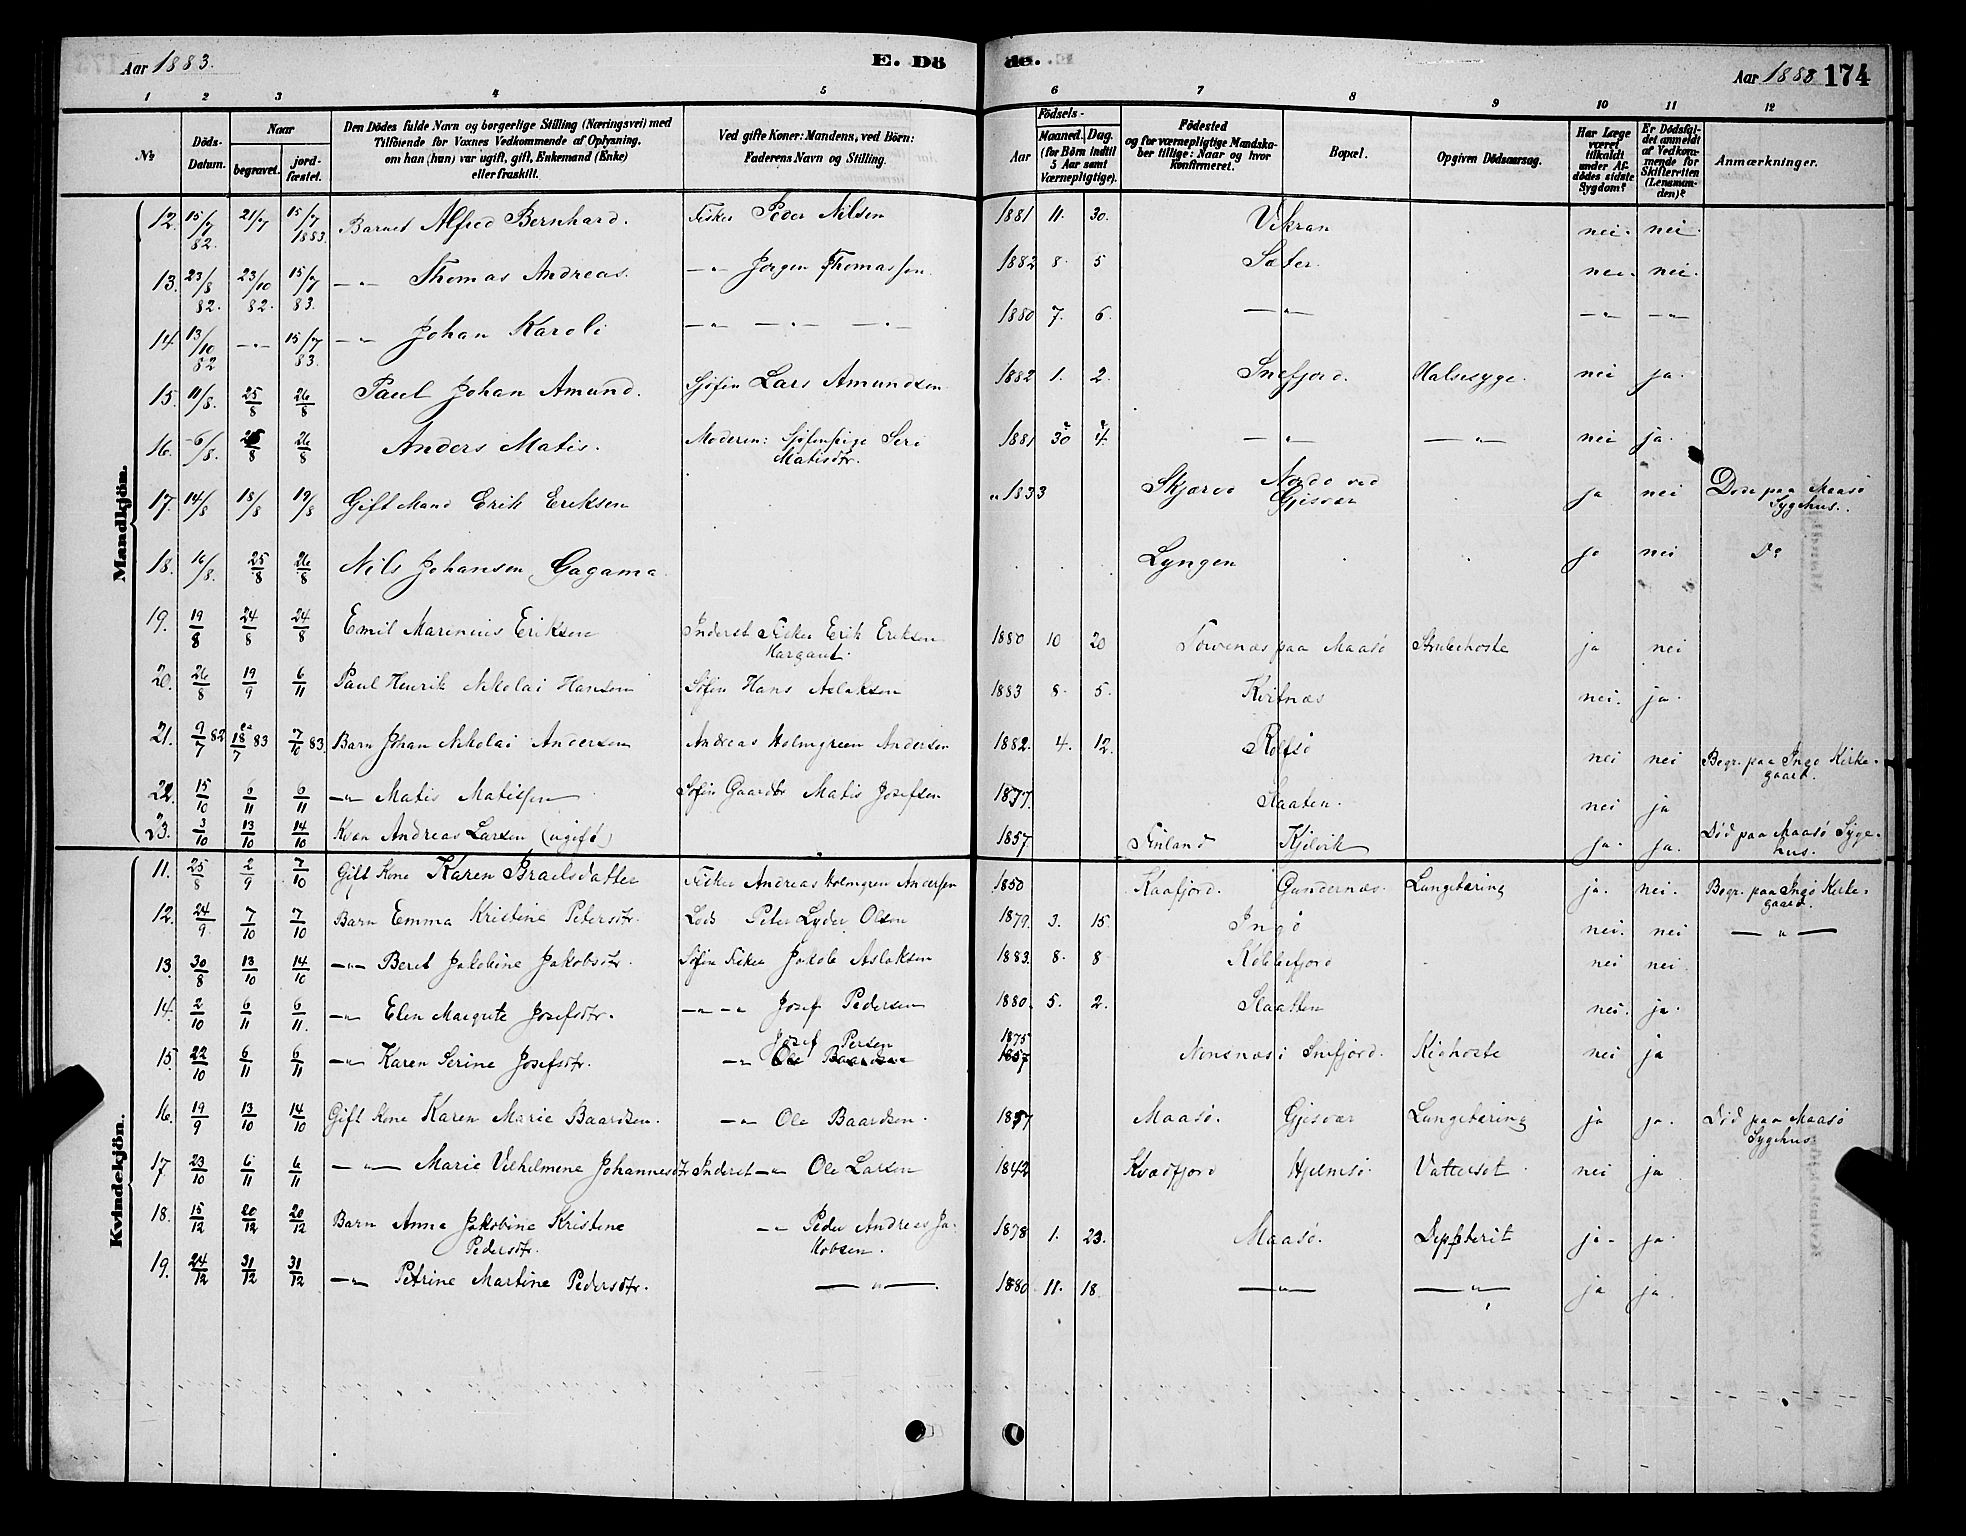 Aar 1883. E. Dö de. Aar 1883 174
1 2 3 4 5 6 7 8 9 10 11 12
No. Döds-Datum. Naar begravet. jord-fæstet. Den Dödes fulde Navn og borgerlige Stilling (Næringsvei) med Tilföiende for Voxnes Vedkommende af Oplysning. om han (hun) var ugift, gift, Enkemand (Enke) eller fraskilt. Ved gifte Koner: Mandens, ved Börn: Faderens Navn og Stilling. Födsels- Aar Maaned. Dag. (for Börn indtil 5 Aar samt Værnepligtige). Födested og for værnepligtige Mandskaber tillige: Naar og hvor konfirmeret. Bopæl. Opgiven Dödsaarsag. Har Læge været tilkaldt under Afdödes sidste Sygdom? Er Dödsfaldet anmeldt af Vedkommende for Skifteretten (Lensmanden)? Anmærkninger.
Mandkjön.
12. 15/7 82. 21/7 15/7 1883. Barnet Alfred Bernhard. Fisker Peder Nilsen 1881 11. 30. Vikran nei. nei.
13. 23/8 82. 23/10 82. 15/7 83. —"— Thomas Andreas. —"— Jørgen Thomassen 1882 8. 5 Sæter. nei. nei.
14. 13/10 82 —"— 15/7 83. —"— Johan Karoli —"— —"— —"— 1880 7. 6. —"— —"— —"—
15. 11/8. 25/8 26/8 Paul Johan Amund. Sjøfin Lars Amundsen 1882 1. 2. Snefjord. Halssyge. nei ja.
16. -6/8. 25/8 26/8 Anders Matis. Moderen: Sjøfinpige Seri Matisdtr. 1881 30 4. —"— —"— nei ja.
17. 14/8 18/8 19/8 Gift Mand Erik Eriksen "1833 Skjærvø Nordo ved Gjesvær ja nei Døde paa Maasø Sygehus.
18. 16/8. 25/8 26/8 Nils Johansen Gagama Lyngen ja nei Do
19. 19/8 24/8 24/8 Emil Marinius Eriksen Inderst Fisker Erik Eriksen Kargaut. 1880 10 20 Torvenæs paa Maasø Strubehoste ja nei
20. 26/8 19/9 6/11 Paul Henrik Nikolai Hansen Søfin Hans Aslaksen 1883 8. 5. Kvitnæs nei. ja.
21. 9/7 82 18/7 83 7/10 83. Barn Johan Nikolai Andersen Andreas Holmgreen Andersen 1882. 4. 12. Rolfsø nei nei Begr. paa Ingø Kirkegaard.
22. 15/10 6/11 6/11 —"— Matis Matissen Søfin Gaardbr Matis Josefsen 1877. Slaaten. nei ja
23. 3/10 13/10 14/10 Kvæn Andreas Larsen (ugift) 1857. Finland Kjelvik ja. ja. Död paa Maasø Sygehus.
Kvindekjön.
11. 25/8 2/9 7/10 Gift Kone Karen Israelsdatter Fisker Andreas Holmgren Andersen 1850 Kaafjord. Gundernæs. Lungetæring ja. nei. Begr. paa Ingø Kirkegaard.
12. 24/9. 7/10 7/10 Barn Emma Kristine Petersdtr. Lods Peter Lyder Olsen 1879. 3. 15. Ingø nei. nei —"—
13. 30/8 13/10 14/10 —"— Beret Jakobine Jakobsdtr. Søfin Fisker Jakob Aslaksen 1883. 8. 8 Kobbefjord nei nei.
14. 2/10 6/11 6/11. —"— Elen Margrete Josefsdtr. —"— —"— Josef Pedersen 1880. 5. 2. Slaatten nei. ja.
15. 22/10 6/11 6/11 —"— Karen Serine Josefsdtr. —"— Josef Persen Ole Baardsen 1875 1857 Nonsnæs i Snefjord. Kighoste nei ja
16. 19/9 13/10 14/10 Gift Kone Karen Marie Baardsen. —"— Ole Baardsen. 1857 Maasø. Gjesvær Lungetæring ja ja. Död paa Maasø Sygehus
17. 23/10 6/11 6/11 —"— Marie Vilhelmene Johannesdtr Inderst —"— Ole Larsen 1842 Kvædfjord Hjelmsø. Vattersot. nei ja
18. 15/12 20/12 20/12 Barn Anna Jakobine Kristine Pedersdtr. —"— Peder Andreas Jakobsen. 1878 1. 23. Maasø. Depfterit ja. ja.
19. 24/12 31/12 31/12 —"— Petrine Martine Pedersdtr. —"—. 1880. 11. 18. —"— —"— ja ja.